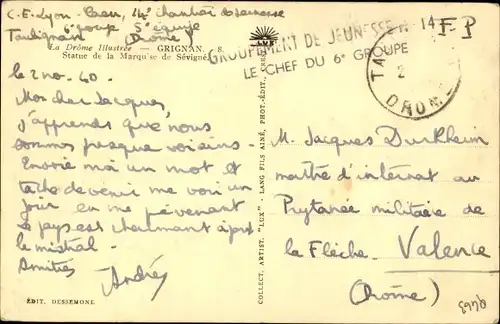 C.E. Lyon - Caen, 14e chantier de Jeunesse
6e groupe 5e équipe
Taulignan (Drôme)
La Drôme Illustrée — GRIGNAN. 8.
Statue de la Marquise de Sévigné
GROUPEMENT DE JEUNESSE N 14
LE CHEF DU 6e GROUPE
F-P
LUX
TA
2
DROME
le 2 nov. 40.
Mon cher Jacques,
J'apprends que nous
sommes presque voisins.
Envoie moi un mot et
tache de venir me voir un
jour en me prévenant
Le pays est charmant à part
le mistral.
Amitiés
André
ÉDIT. DESSEMONE
COLLECT. ARTIST. "LUX" - LANG FILS AINÉ, PHOT.-ÉDIT.
M. Jacques Durkheim
maître d'internat au
Prytanée militaire de
la Flèche. Valence
(Drôme)